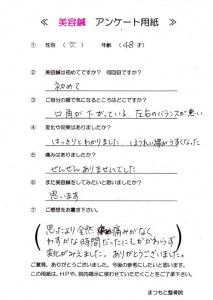 ≪ 美容鍼 アンケート用紙 ≫
① 性別 (女) 年齢 (48才)
② 美容鍼は初めてですか？ 何回目ですか？
初めて
③ ご自分の顔で気になるところはどこですか？
口角が下がっている、左右のバランスが悪い
④ 変化や効果はありましたか？
はっきりとわかりました、ほうれい線がうすくなった
⑤ 痛みはありましたか？
ぜんぜんありませんでした
⑥ また美容鍼をしてみたいと思いましたか？
思います
⑦ ご感想をお書き下さい。
思ったより全然痛みがなく
わずかな時間だったにもかかわらず
変化がみえました。ありがとうございました。
ご意見、ありがとうございます。今後の参考にしたいと思います。
この用紙は、HPや、院内掲示に使わせていただくことをご了承下さい。
まつもと整骨院